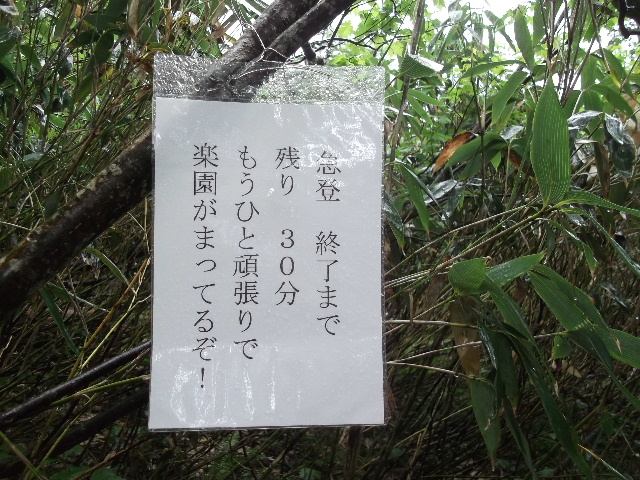 急登　終了まで
残り　３０分
もうひと頑張りで
楽園がまってるぞ！